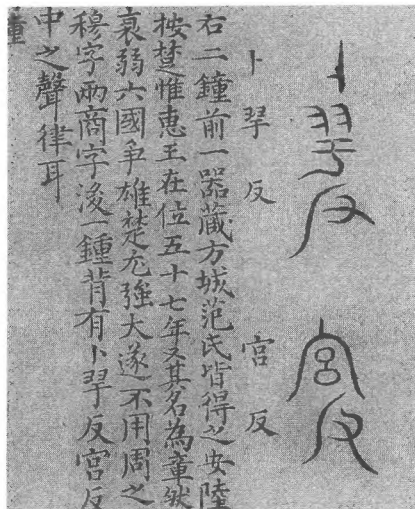 卜羿反 宮反
卜羿反 宮反
右二鐘前一器藏方城范氏皆得之安陸
按楚惟惠王在位五十七年又其名為章然
衰弱六國爭雄楚尤強大遂不用周之
穆字兩商字後一鍾背有卜羿反宮反
中之聲律耳